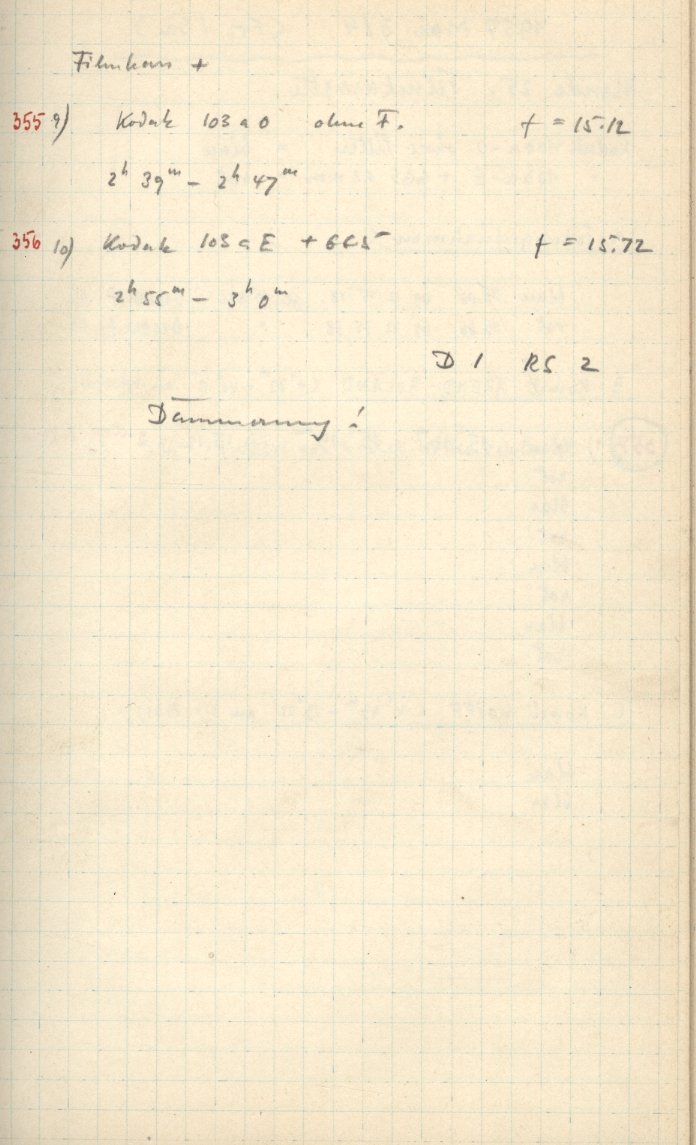 Filmkass +
355 9) Kodak 103 a O ohne F. f = 15.12
2h 39m – 2h 47m
356 10) Kodak 103 a E + 665 f = 15.72
2h 55m – 3h 0m
D 1 RS 2
Dämmerung !